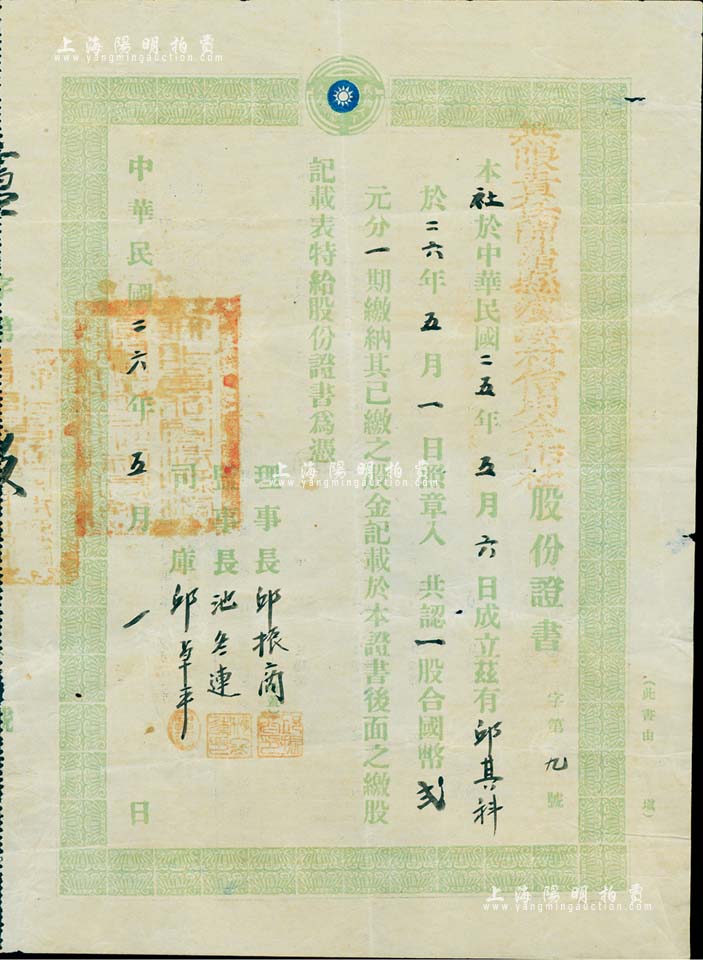 上海陽明拍賣
www.yangmingauction.com
股份證書
字第九號
(此書由 填)
本社於中華民國二五年五月六日成立茲有邱其科
於二六年五月一日照章入 共認一股合國幣弍
元分一期繳納其已繳之股金記載於本證書後面之繳股
記載表特給股份證書為憑
理事長邱振商
監事長池冬連
司庫邱卓丰
中華民國二六年五月一日
上海陽明拍賣
www.yangmingauction.com
上海陽明拍賣
www.yangmingauction.com